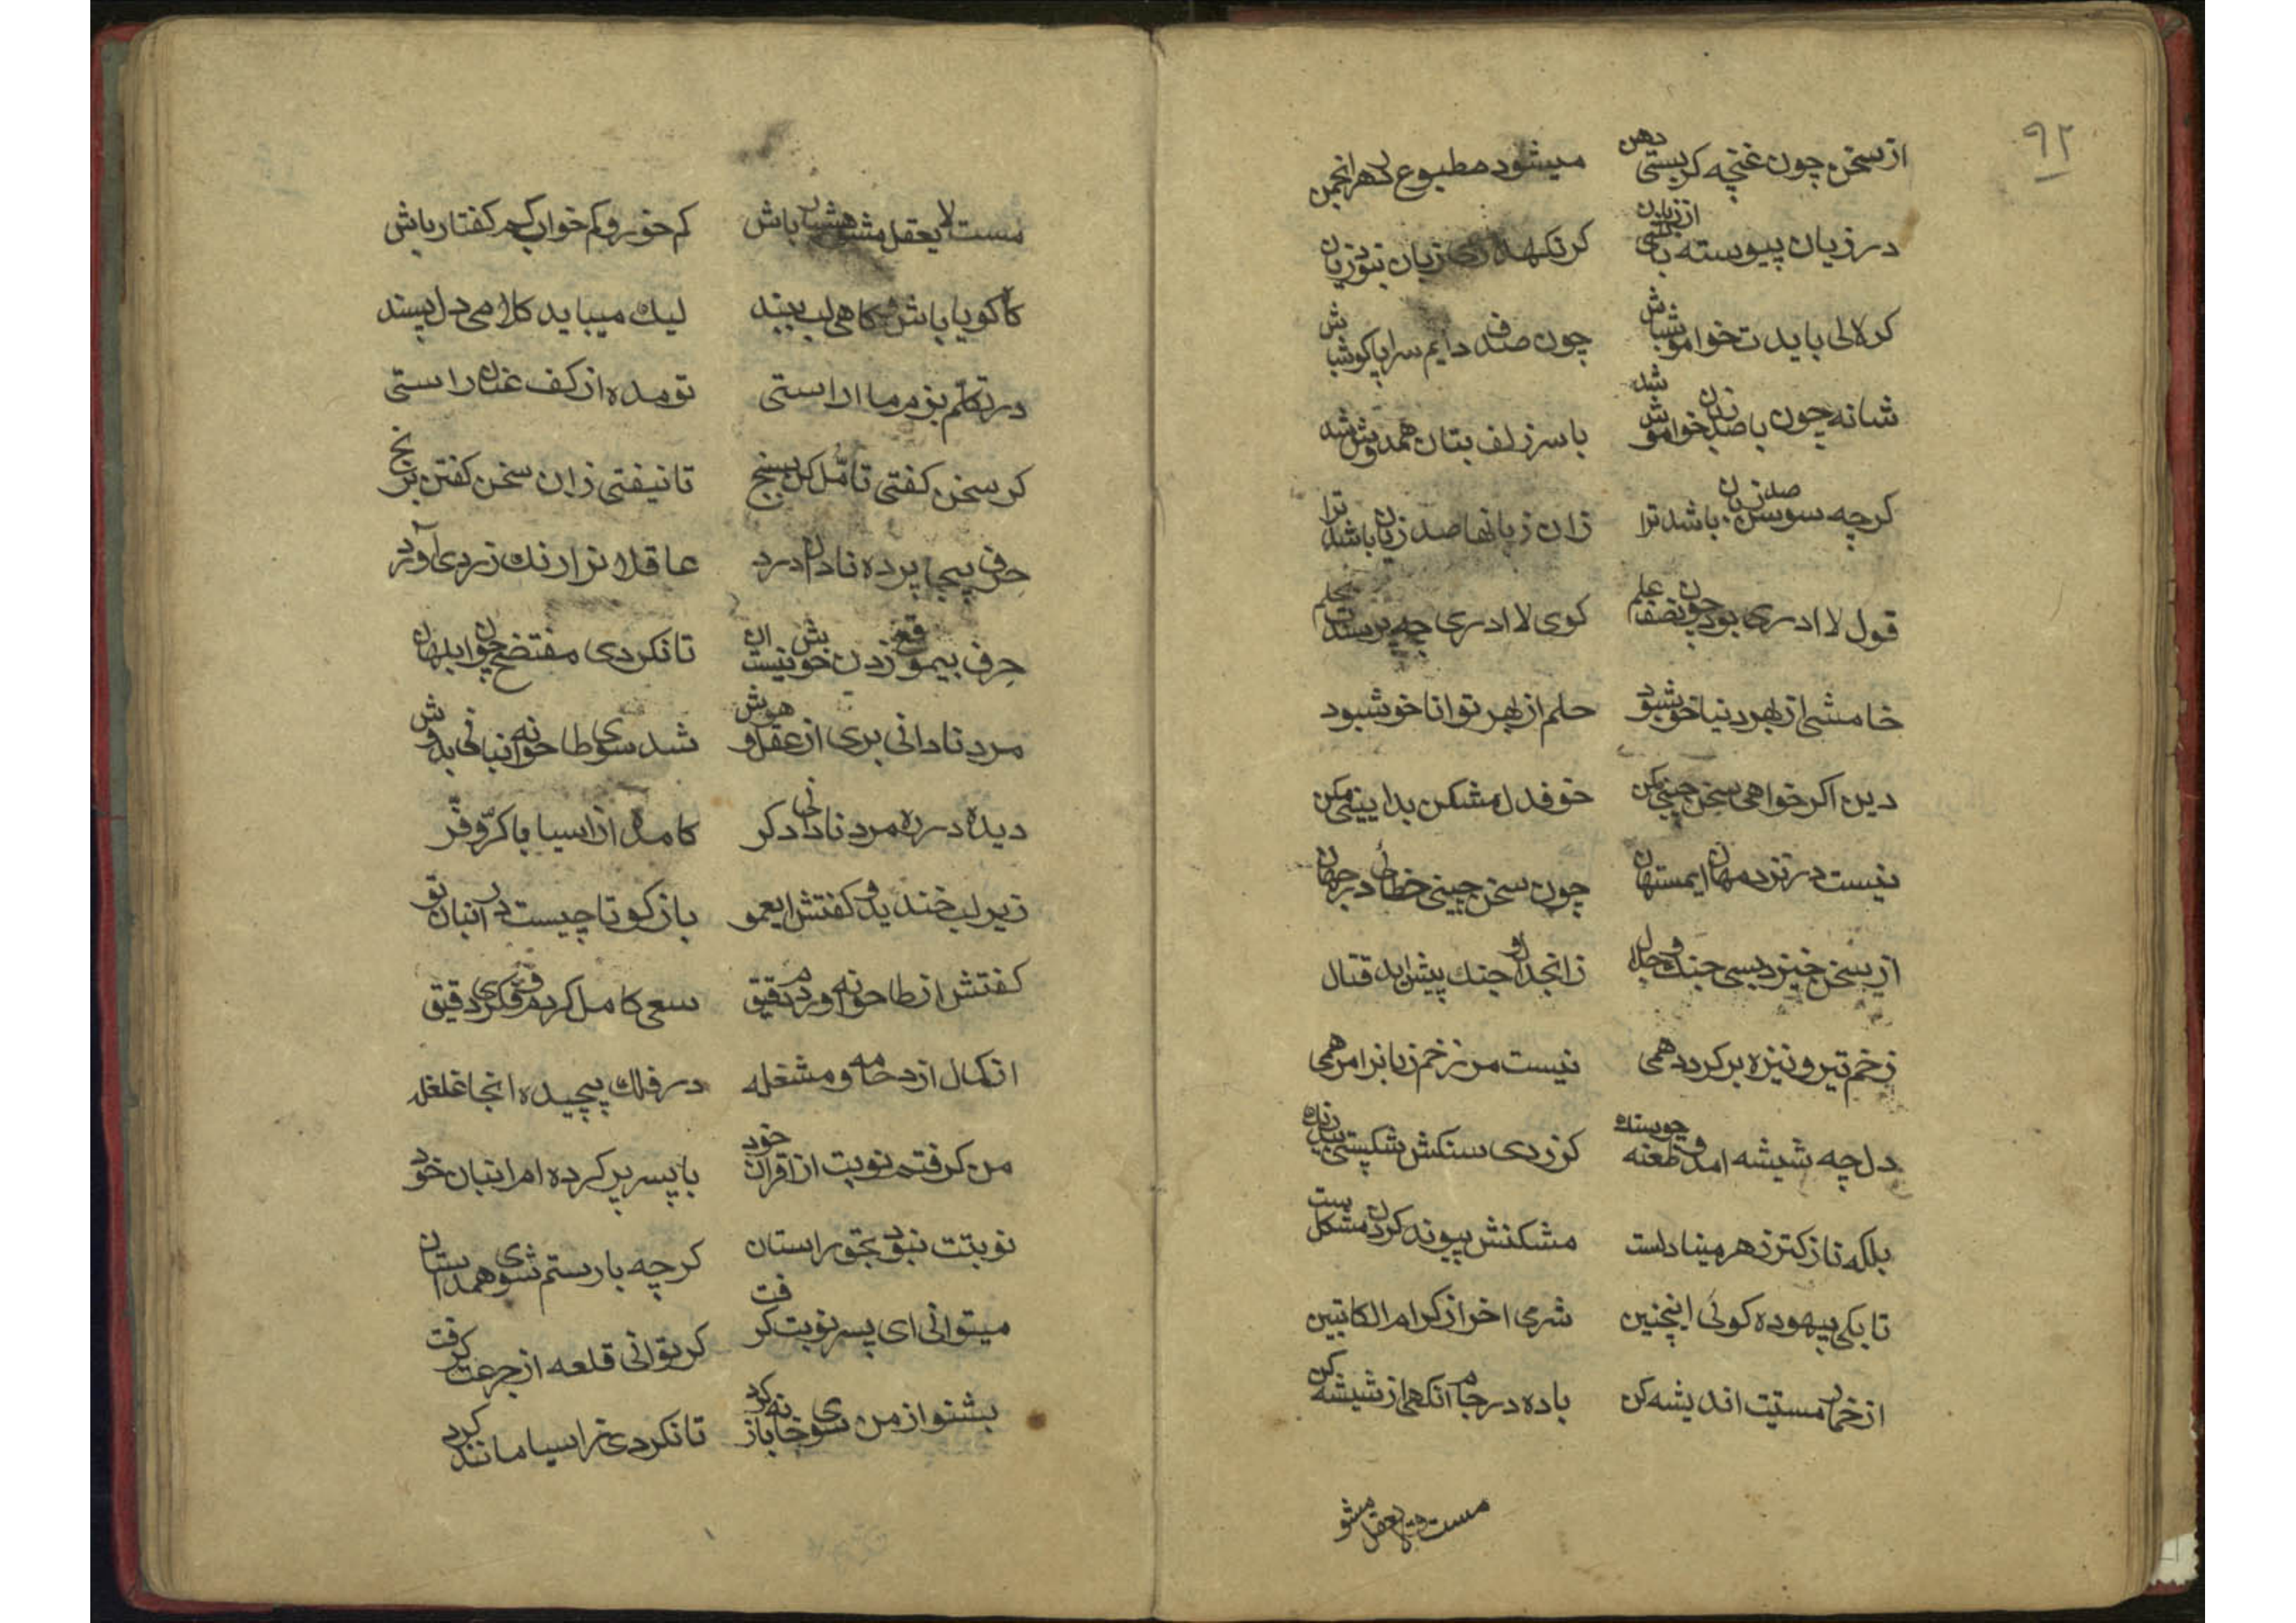 ۹۲
از سخن چون غنچه کر بستی دهن میشود مطبوع هر انجمن
در زیان پیوسته باشی از زبان کر نکهداری زبان نبود زیان
کر لالی بایدت خواموش باش چون صدف دایم سراپا کوش باش
شانه چون با صد زبان خواموش شد با سر زلف بتان همدوش شد
کرچه سوسن صد زبان باشد ترا زان زبانها صد زیان باشد ترا
قول لا ادری بود چون نصف علم کوی لا ادری چه پرسندت
خامشی از بهر دنیا خوش بود حلم از بهر توانا خوشبود
دین اکر خواهی سخن چینی مکن خوف دل مشکن بدایینی مکن
نیست در نزد مهان ای مستهان چون سخن چینی خطائی در جهان
از سخن خیزد بسی جنک و جدال زانجدال و جنک پیش اید قتال
زخم تیر و نیزه بر کردد همی نیست مر زخم زبانرا مرهمی
دل چه شیشه امد و طعنه چو سنک کر زدی سنکش شکستی بیدرنک
بلکه نازکتر ز هر مینا دلست مشکنش پیوند کردن مشکل ست
تا بکی بیهوده کوئی اینچنین شرمی اخر از کرام الکاتبین
از خمار مستیت اندیشه کن باده در جام انکهی از شیشه کن
مست لایعقل مشو
مست لایعقل مشو هشیار باش کم خور و کم خواب کم کفتار باش
کاه کویا باش کاهی لب ببند لیك میباید کلامی دل پسند
در تکلم بزم ما اراستی تو مده از کف عنان راستی
کر سخن کفتی تامّل کن بسنج تا نیفتی زان سخن کفتن برنج
حرف بیجا پرده نادان درد عاقلانرا رنك زردی آورد
حرف بیموقع زدن خوبش نیست ان تا نکردی مفتضح چون ابلهان
مرد نادانی بری از عقل و هوش شد سوی طاحونه انبانی بدوش
دیده در ره مرد نادانی دکر کامده از اسیا با کرّ و فّر
زیر لب خندید و کفتش ایعمو باز کو تا چیست در انبان تو
کفتش از طاحونه اوردم دقیق سعی کامل کردم و فکری دقیق
از کمال ازدحامه و مشغله در فلك پیچیده انجا غلغله
من کرفتم نوبت از اقران خود با پسر پر کرده ام انبان خود
نوبتت نبود بجو راستان کرچه با رستم شوی همداستان
میتوانی ای پسر نوبت کرفت کر توانی قلعه از جرعت کرفت
بشنو از من سوی خانه باز کرد تا نکردی ز اسیا مانند کرد